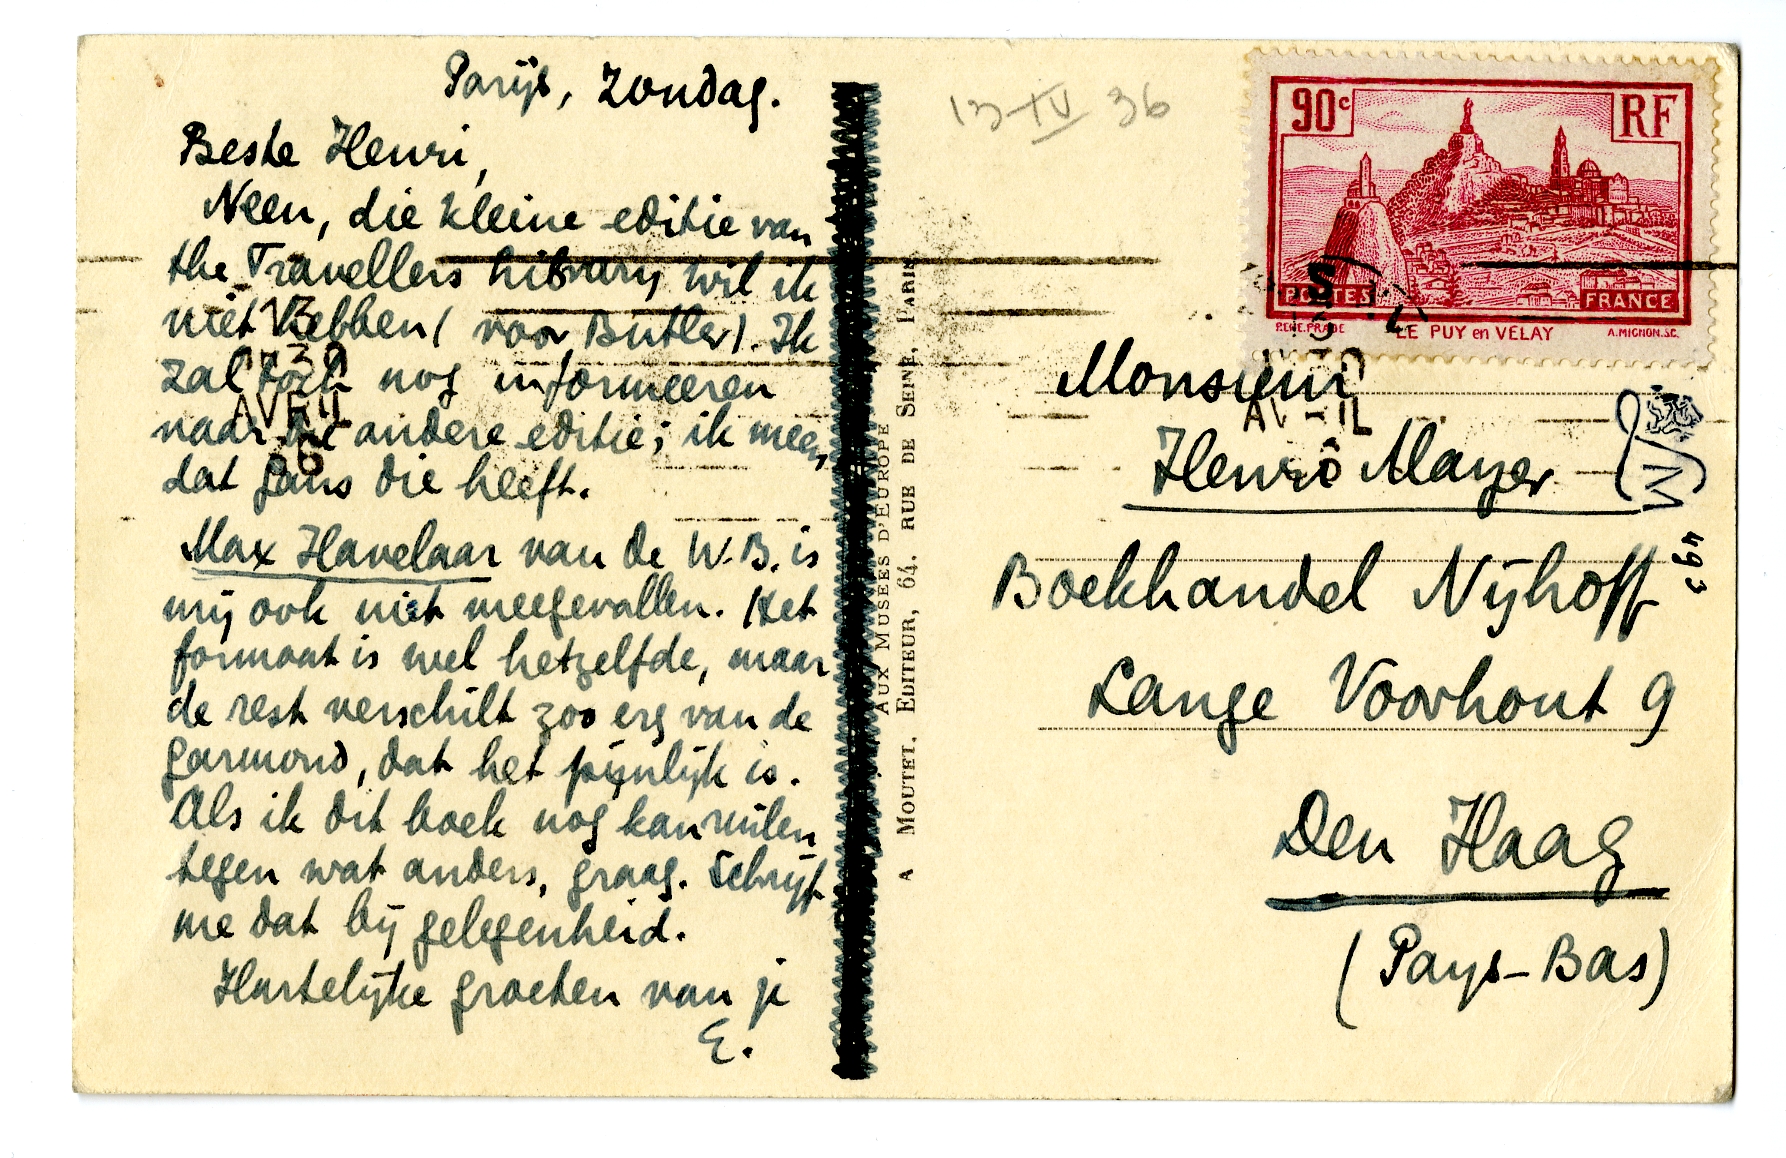 Parijs, Zondag.
Beste Henri,
Neen, die kleine editie van
the Travellers Library wil ik
niet hebben (voor Butler). Ik
zal toch nog informeeren
naar de andere editie; ik meen,
dat Gans die heeft.
Max Havelaar van de W.B. is
mij ook niet meegevallen. Het
formaat is wel hetzelfde, maar
de rest verschilt zoo erg van de
garmond, dat het pijnlijk is.
Als ik dit boek nog kan ruilen
tegen wat anders, graag. Schrijf
me dat bij gelegenheid.
Hartelijke groeten van je
E.
13
AVRIL
36
AUX MUSÉES D'EUROPE
A MOUTET, EDITEUR, 64, RUE DE SEINE, PARIS
13-IV 36
90c
RF
POSTES
FRANCE
LE PUY en VELAY
A.MIGNON.SC.
AVRIL
Monsieur
Henri Mayer
Boekhandel Nijhoff
Lange Voorhout 9
Den Haag
(Pays-Bas)
LM
493